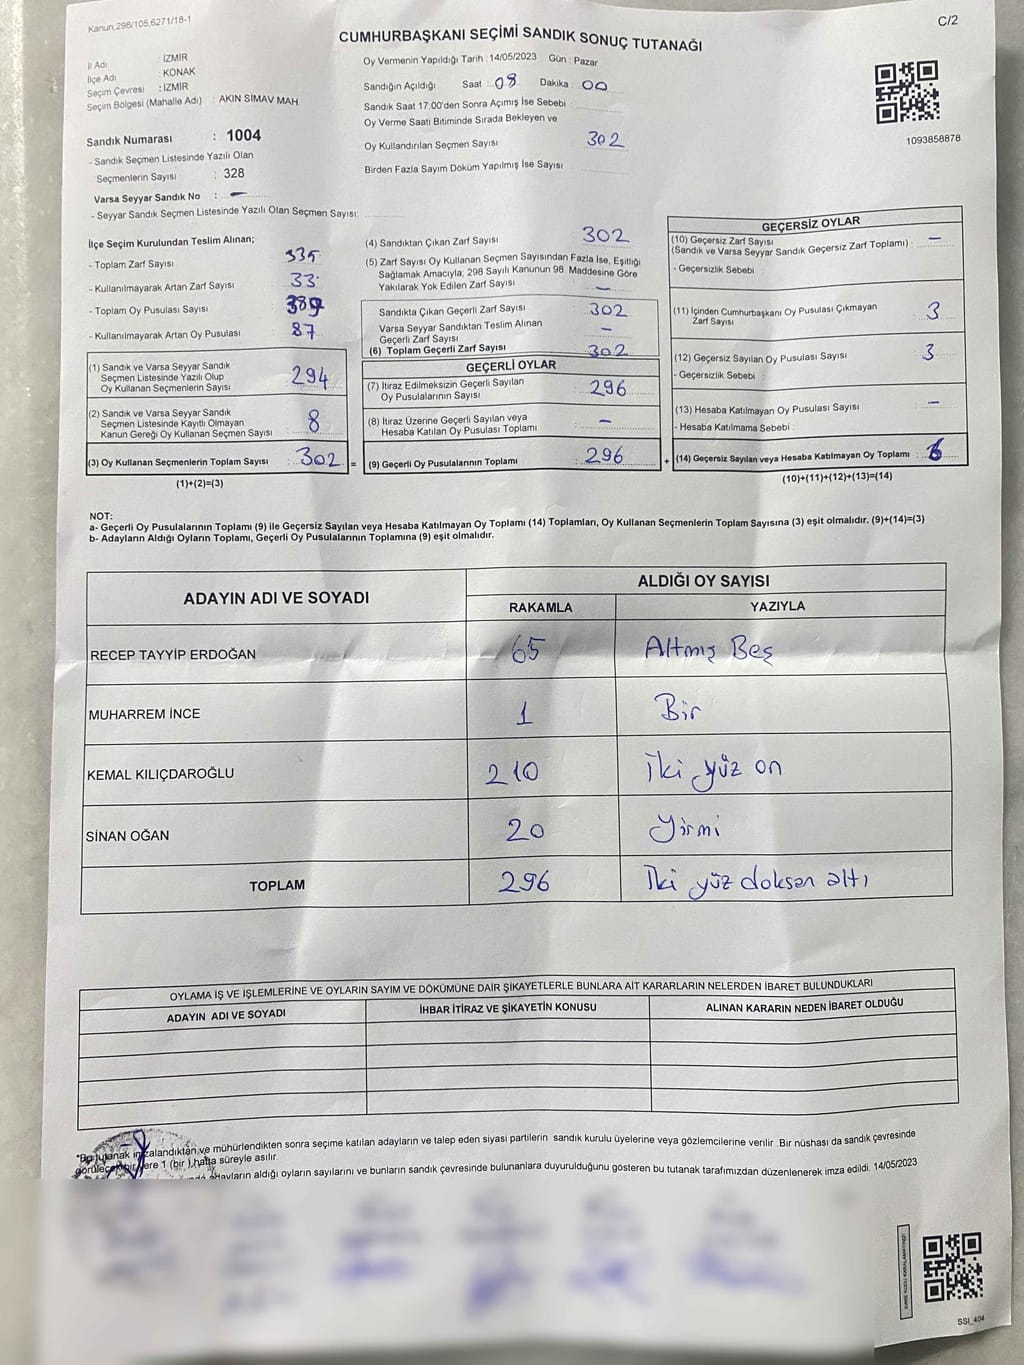 Kanun;298/105,6271/18-1
C/2
CUMHURBAŞKANI SEÇİMİ SANDIK SONUÇ TUTANAĞI
İl Adı : İZMİR
İlçe Adı : KONAK
Seçim Çevresi : İZMİR
Seçim Bölgesi (Mahalle Adı) : AKIN SİMAV MAH
Oy Vermenin Yapıldığı Tarih : 14/05/2023 Gün : Pazar
Sandığın Açıldığı Saat : 08 Dakika : 00
Sandık Saat 17:00'den Sonra Açımış İse Sebebi :
Oy Verme Saati Bitiminde Sırada Bekleyen ve
Oy Kullandırılan Seçmen Sayısı : 302
Birden Fazla Sayım Döküm Yapılmış İse Sayısı
1093858878
Sandık Numarası : 1004
- Sandık Seçmen Listesinde Yazılı Olan
Seçmenlerin Sayısı : 328
Varsa Seyyar Sandık No : -
- Seyyar Sandık Seçmen Listesinde Yazılı Olan Seçmen Sayısı:
İlçe Seçim Kurulundan Teslim Alınan;
- Toplam Zarf Sayısı : 335
- Kullanılmayarak Artan Zarf Sayısı : 33
- Toplam Oy Pusulası Sayısı : 389
- Kullanılmayarak Artan Oy Pusulası : 87
(1) Sandık ve Varsa Seyyar Sandık
Seçmen Listesinde Yazılı Olup
Oy Kullanan Seçmenlerin Sayısı : 294
(2) Sandık ve Varsa Seyyar Sandık
Seçmen Listesinde Kayıtlı Olmayan
Kanun Gereği Oy Kullanan Seçmen Sayısı : 8
(3) Oy Kullanan Seçmenlerin Toplam Sayısı : 302 =
(1)+(2)=(3)
(4) Sandıktan Çıkan Zarf Sayısı : 302
(5) Zarf Sayısı Oy Kullanan Seçmen Sayısından Fazla İse, Eşitliği
Sağlamak Amacıyla; 298 Sayılı Kanunun 98. Maddesine Göre
Yakılarak Yok Edilen Zarf Sayısı : -
Sandıkta Çıkan Geçerli Zarf Sayısı : 302
Varsa Seyyar Sandıktan Teslim Alınan
Geçerli Zarf Sayısı : -
(6) Toplam Geçerli Zarf Sayısı : 302
GEÇERLİ OYLAR
(7) İtiraz Edilmeksizin Geçerli Sayılan
Oy Pusulalarının Sayısı : 296
(8) İtiraz Üzerine Geçerli Sayılan veya
Hesaba Katılan Oy Pusulası Toplamı : -
(9) Geçerli Oy Pusulalarının Toplamı : 296 +
GEÇERSİZ OYLAR
(10) Geçersiz Zarf Sayısı
(Sandık ve Varsa Seyyar Sandık Geçersiz Zarf Toplamı) : -
- Geçersizlik Sebebi :
(11) İçinden Cumhurbaşkanı Oy Pusulası Çıkmayan
Zarf Sayısı : 3
(12) Geçersiz Sayılan Oy Pusulası Sayısı : 3
- Geçersizlik Sebebi :
(13) Hesaba Katılmayan Oy Pusulası Sayısı : -
- Hesaba Katılmama Sebebi :
(14) Geçersiz Sayılan veya Hesaba Katılmayan Oy Toplamı : 6
(10)+(11)+(12)+(13)=(14)
NOT:
a- Geçerli Oy Pusulalarının Toplamı (9) ile Geçersiz Sayılan veya Hesaba Katılmayan Oy Toplamı (14) Toplamları, Oy Kullanan Seçmenlerin Toplam Sayısına (3) eşit olmalıdır. (9)+(14)=(3)
b- Adayların Aldığı Oyların Toplamı, Geçerli Oy Pusulalarının Toplamına (9) eşit olmalıdır.
ADAYIN ADI VE SOYADI
ALDIĞI OY SAYISI
RAKAMLA YAZIYLA
RECEP TAYYİP ERDOĞAN 65 Altmış Beş
MUHARREM İNCE 1 Bir
KEMAL KILIÇDAROĞLU 210 İki yüz on
SİNAN OĞAN 20 Yirmi
TOPLAM 296 İki yüz doksan altı
OYLAMA İŞ VE İŞLEMLERİNE VE OYLARIN SAYIM VE DÖKÜMÜNE DAİR ŞİKAYETLERLE BUNLARA AİT KARARLARIN NELERDEN İBARET BULUNDUKLARI
ADAYIN ADI VE SOYADI İHBAR İTİRAZ VE ŞİKAYETİN KONUSU ALINAN KARARIN NEDEN İBARET OLDUĞU
*Bu tutanak imzalandıktan ve mühürlendikten sonra seçime katılan adayların ve talep eden siyasi partilerin sandık kurulu üyelerine veya gözlemcilerine verilir .Bir nüshası da sandık çevresinde
görülecek bir yere 1 (bir ) hafta süreyle asılır.
aldığı oyların sayılarını ve bunların sandık çevresinde bulunanlara duyurulduğunu gösteren bu tutanak tarafımızdan düzenlenerek imza edildi. 14/05/2023
KARE KODU KARALAMAYINIZ!
SSI_404